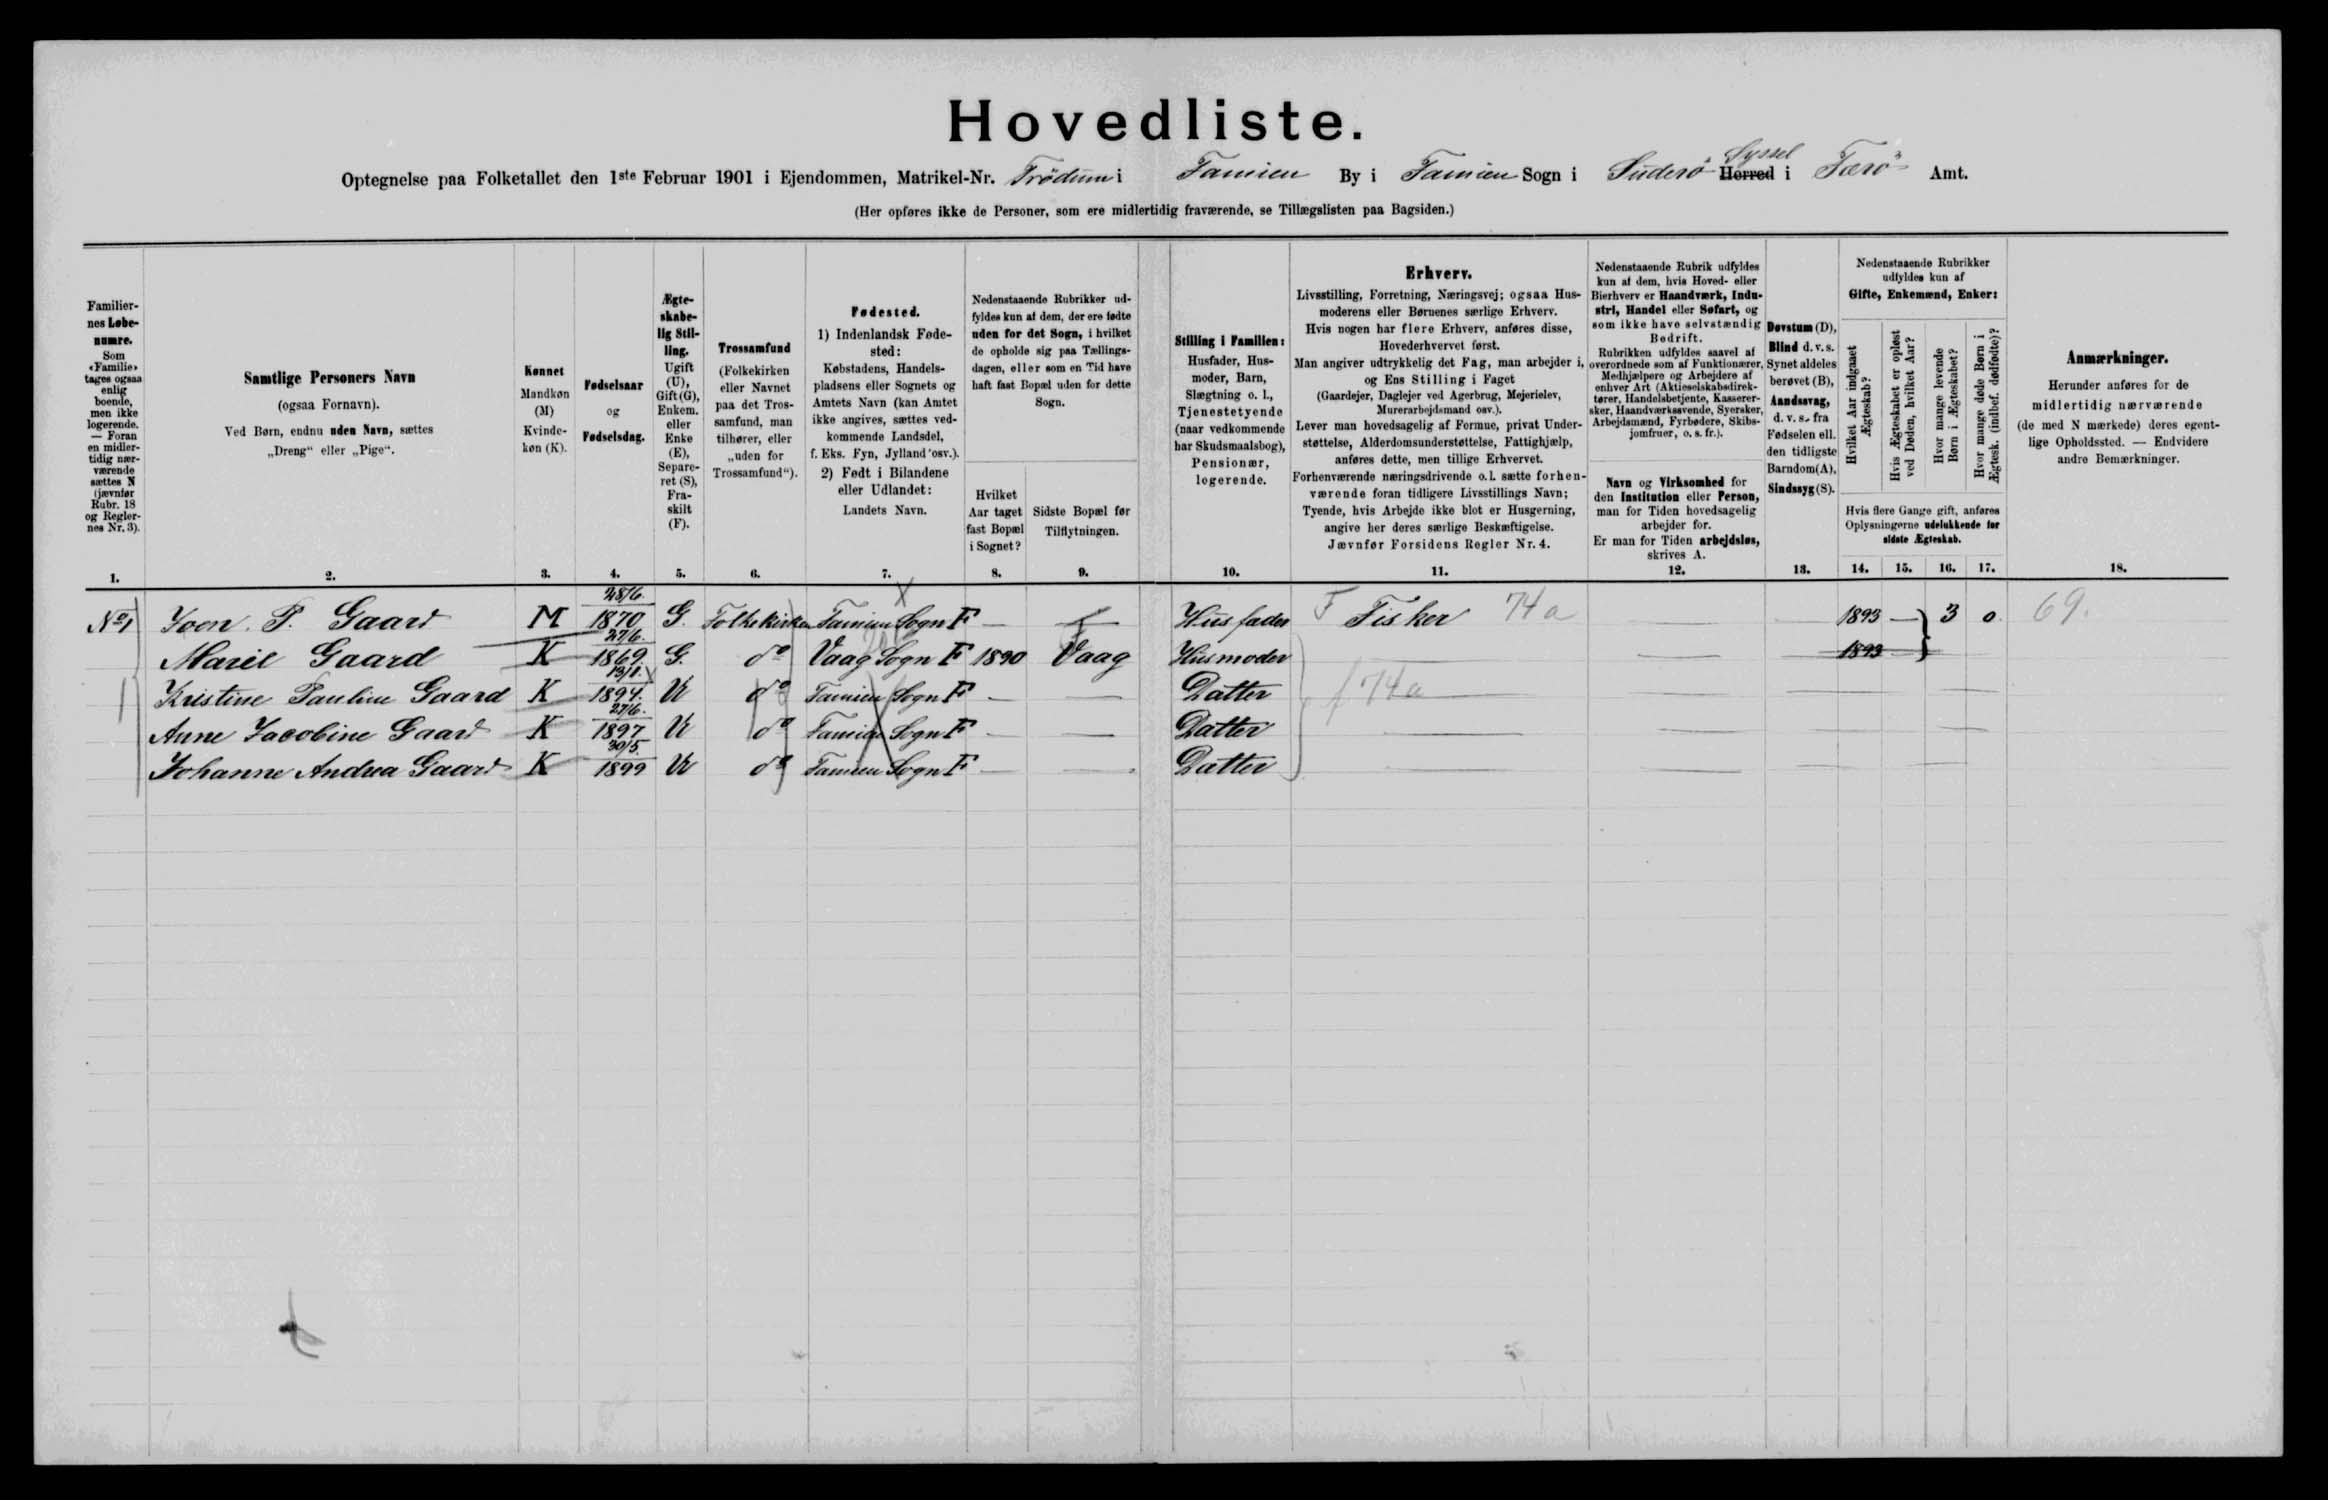 Hovedliste.
Optegnelse paa Folketallet den 1ste Februar 1901 i Ejendommen, Matrikel-Nr. Trödum i Famien By i Famien Sogn i Suderö Herred Syssel i Færö Amt.
(Her opføres ikke de Personer, som ere midlertidig fraværende, se Tillægslisten paa Bagsiden.)
Familiernes Løbenumre.
Som «Familie» tages ogsaa enlig boende, men ikke logerende. — Foran en midlertidig nærværende sættes N (jævnfør Rubr. 18 og Reglernes Nr. 3).
Samtlige Personers Navn
(ogsaa Fornavn).
Ved Børn, endnu uden Navn, sættes
„Dreng“ eller „Pige“.
Kønnet
Mandkøn (M)
Kvindekøn (K).
Fødselsaar
og
Fødselsdag.
Ægteskabelig Stilling.
Ugift (U), Gift (G), Enkem. eller Enke (E), Separeret (S), Fraskilt (F).
Trossamfund
(Folkekirken eller Navnet paa det Trossamfund, man tilhører, eller „uden for Trossamfund“).
Fødested.
1) Indenlandsk Fødested:
Købstadens, Handelspladsens eller Sognets og Amtets Navn (kan Amtet ikke angives, sættes vedkommende Landsdel, f. Eks. Fyn, Jylland osv.).
2) Født i Bilandene eller Udlandet:
Landets Navn.
Nedenstaaende Rubrikker udfyldes kun af dem, der ere fødte uden for det Sogn, i hvilket de opholde sig paa Tællingsdagen, eller som en Tid have haft fast Bopæl uden for dette Sogn.
Hvilket Aar taget fast Bopæl i Sognet?
Sidste Bopæl før Tilflytningen.
Stilling i Familien:
Husfader, Husmoder, Barn, Slægtning o. l., Tjenestetyende (naar vedkommende har Skudsmaalsbog), Pensionær, logerende.
Erhverv.
Livsstilling, Forretning, Næringsvej; ogsaa Husmoderens eller Børnenes særlige Erhverv.
Hvis nogen har flere Erhverv, anføres disse, Hovederhvervet først.
Man angiver udtrykkelig det Fag, man arbejder i, og Ens Stilling i Faget
(Gaardejer, Daglejer ved Agerbrug, Mejerielev, Murerarbejdsmand osv.).
Lever man hovedsagelig af Formue, privat Understøttelse, Alderdomsunderstøttelse, Fattighjælp, anføres dette, men tillige Erhvervet.
Forhenværende næringsdrivende o. l. sætte forhenværende foran tidligere Livsstillings Navn;
Tyende, hvis Arbejde ikke blot er Husgerning, angive her deres særlige Beskæftigelse.
Jævnfør Forsidens Regler Nr. 4.
Nedenstaaende Rubrik udfyldes kun af dem, hvis Hoved- eller Bierhverv er Haandværk, Industri, Handel eller Søfart, og som ikke have selvstændig Bedrift.
Rubrikken udfyldes saavel af overordnede som af Funktionærer, Medhjælpere og Arbejdere af enhver Art (Aktieselskabsdirektører, Handelsbetjente, Kasserersker, Haandværkssvende, Syersker, Arbejdsmænd, Fyrbødere, Skibsjomfruer, o. s. fr.).
Navn og Virksomhed for den Institution eller Person, man for Tiden hovedsagelig arbejder for.
Er man for Tiden arbejdsløs, skrives A.
Døvstum (D), Blind d. v. s. Synet aldeles berøvet (B), Aandssvag, d. v. s. fra Fødselen ell. den tidligste Barndom (A), Sindssyg (S).
Nedenstaaende Rubrikker udfyldes kun af
Gifte, Enkemænd, Enker:
Hvilket Aar indgaaet Ægteskab?
Hvis Ægteskabet er opløst ved Døden, hvilket Aar?
Hvor mange levende Børn i Ægteskabet?
Hvor mange døde Børn i Ægtesk. (indbef. dødfødte)?
Hvis flere Gange gift, anføres Oplysningerne udelukkende for sidste Ægteskab.
Anmærkninger.
Herunder anføres for de midlertidig nærværende (de med N mærkede) deres egentlige Opholdssted. — Endvidere andre Bemærkninger.
1. 2. 3. 4. 5. 6. 7. 8. 9. 10. 11. 12. 13. 14. 15. 16. 17. 18.
No 1 Joen. P. Gaard M 28/6. 1870 G. Folkekirken Famien Sogn F — — Husfader F Fisker 74a — — 1893 — 3 0 69.
Marie Gaard K 27/6. 1869. G. do Vaag Sogn F 1890 Vaag Husmoder — — 1893
Kristine Pauline Gaard K 13/1. 1894. U do Famien Sogn F — — Datter f 74a
Anne Jacobine Gaard K 27/6. 1897 U do Famien Sogn F — — Datter
Johanne Andrea Gaard K 30/5. 1899 U do Famien Sogn F — — Datter